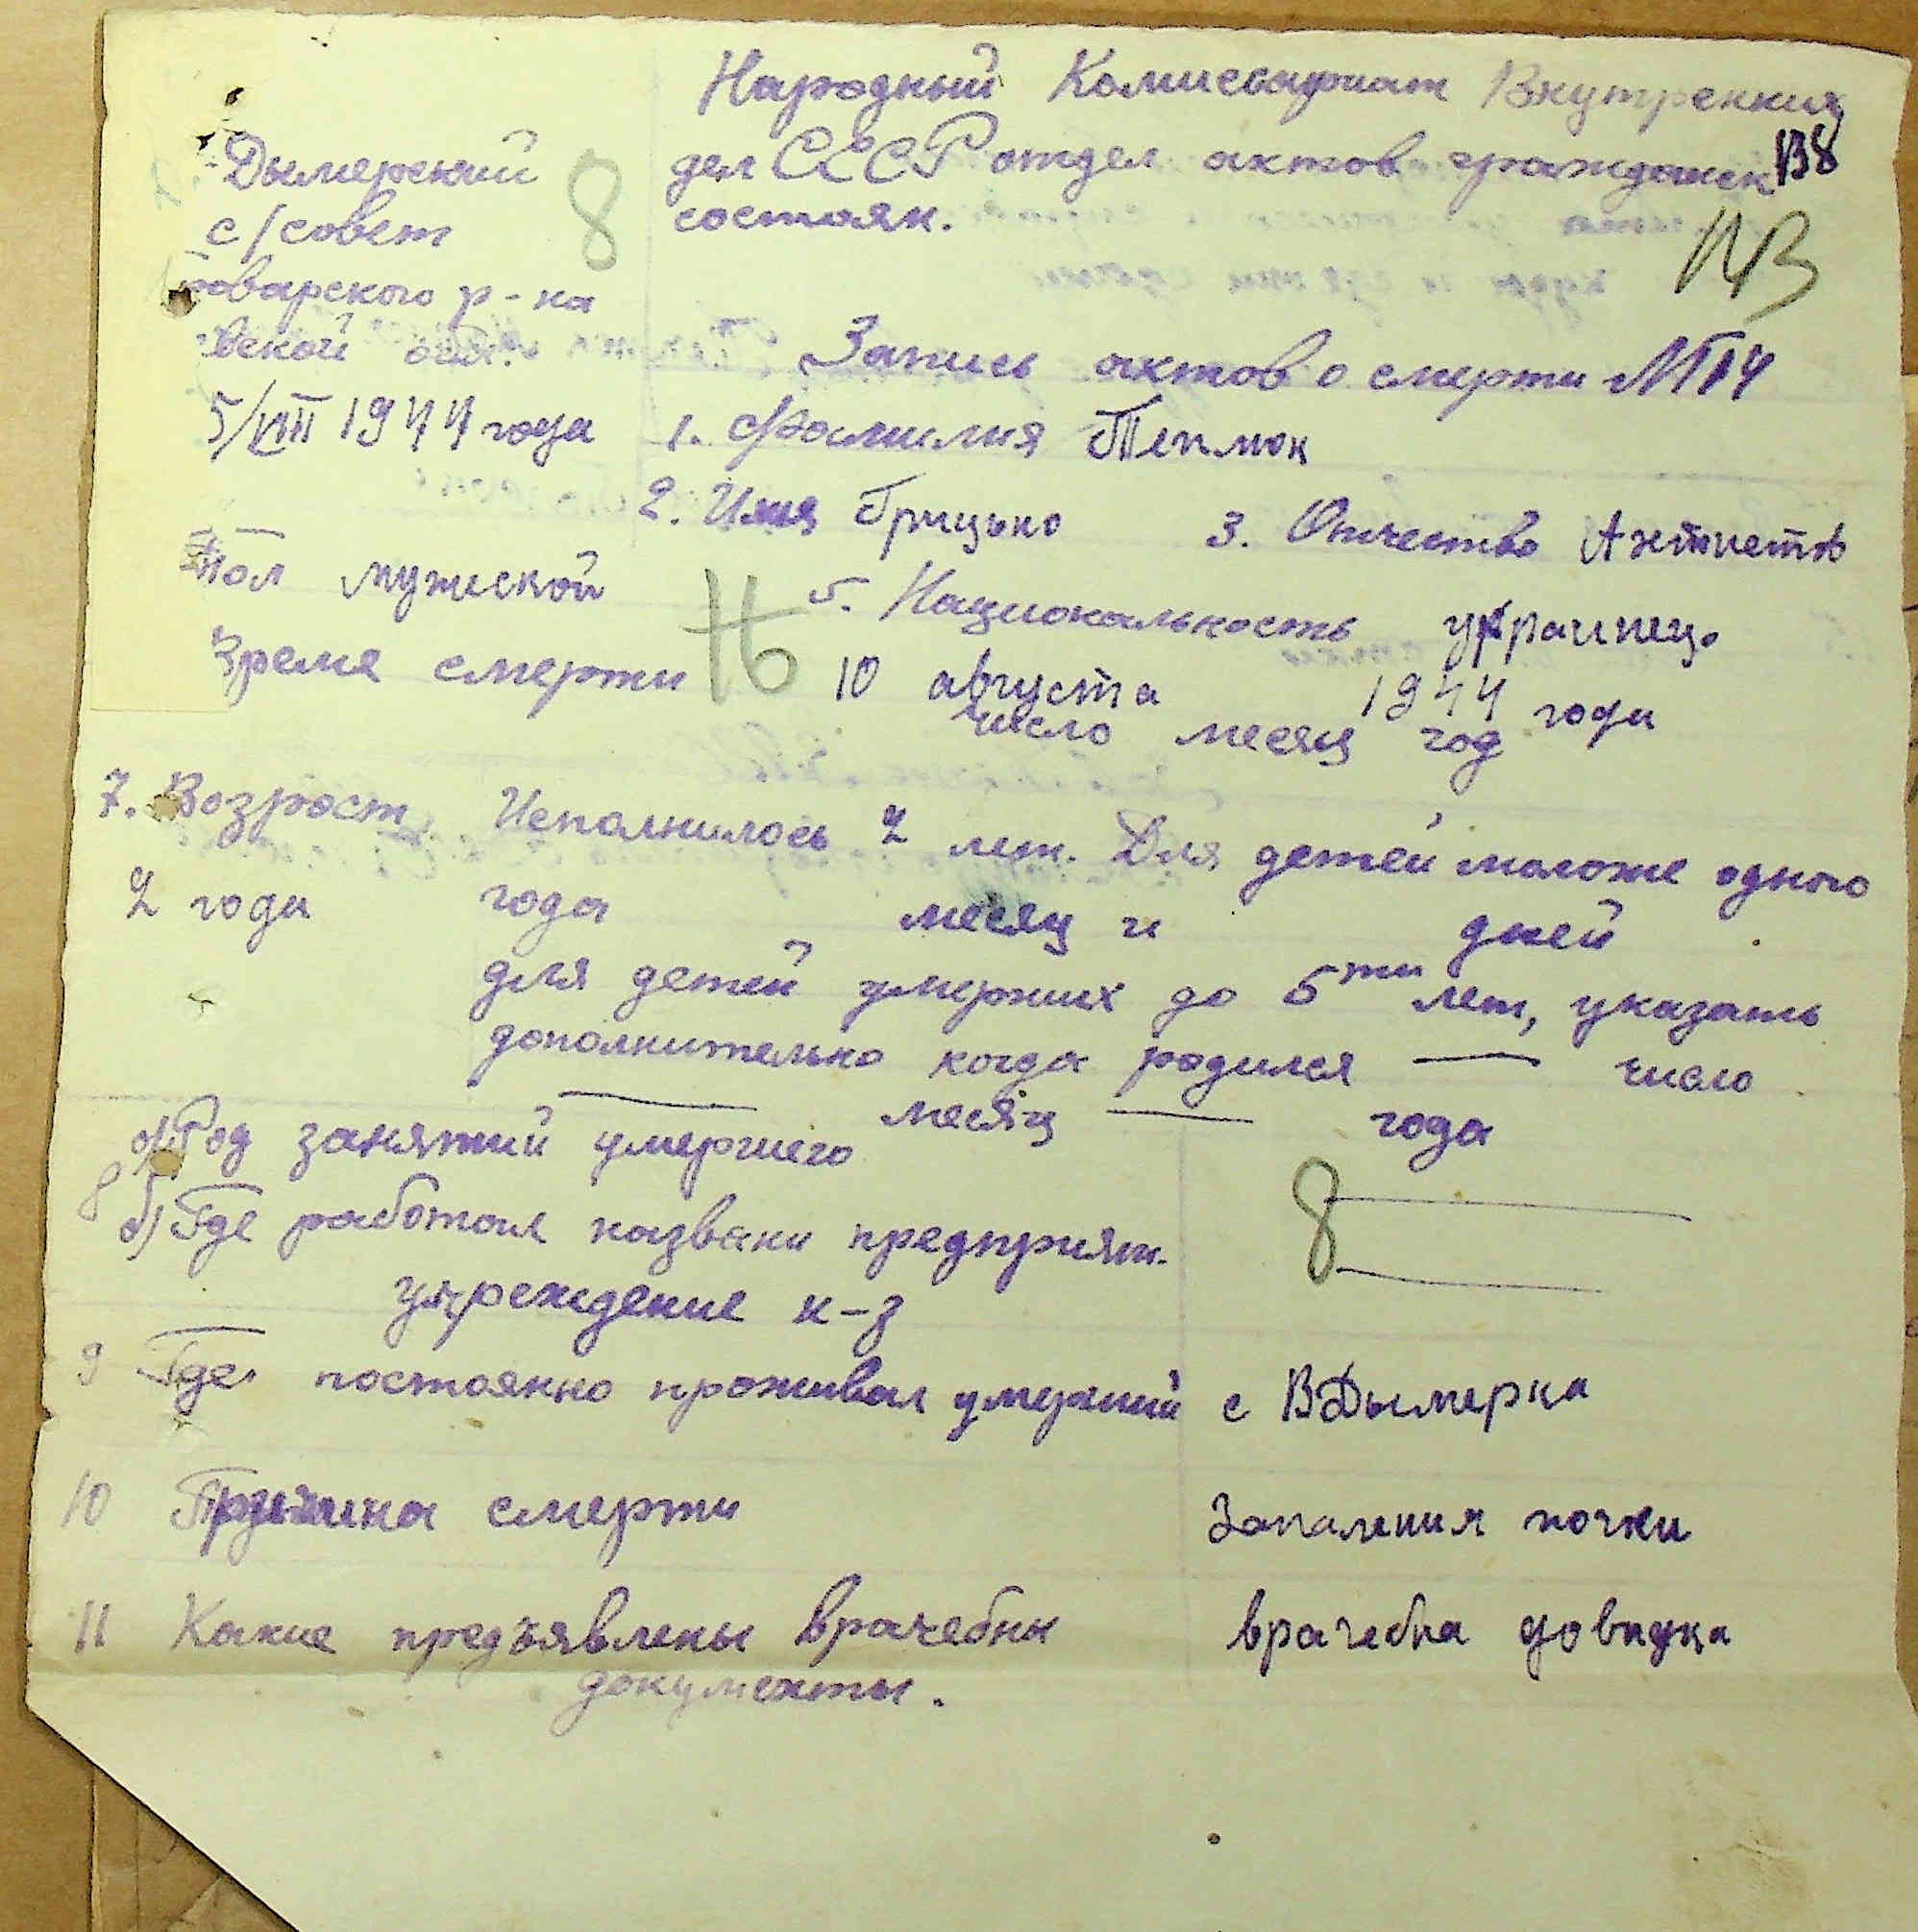 Народный Комисариат Внутренних
дел СССР отдел актов граждански
состоян.
138
113
Дымерский
с/совет
8
оварского р-на
вской обл.
5/VIII 1944 года
Запись актов о смерти №114
1. Фамилия
2. Имя Грицько 3. Отчество
Пол мужской 5. Национальность украинец.
Время смерти 16 10 августа 1944 года
число месяц год
7. Возраст Исполнилось 2 лет. Для детей моложе одного
2 года года месяц и дней
для детей умерших до 5ти лет, указать
дополнительно когда родился — число
— месяц — года
а) Род занятий умершего
8 б) Где работал названи предприят. 8
учреждение к-з
9 Где постоянно проживал умерший с ВДымерка
10 Причина смерти Запаления почки
11 Какие предъявлены врачебны врачебна довидка
документы.